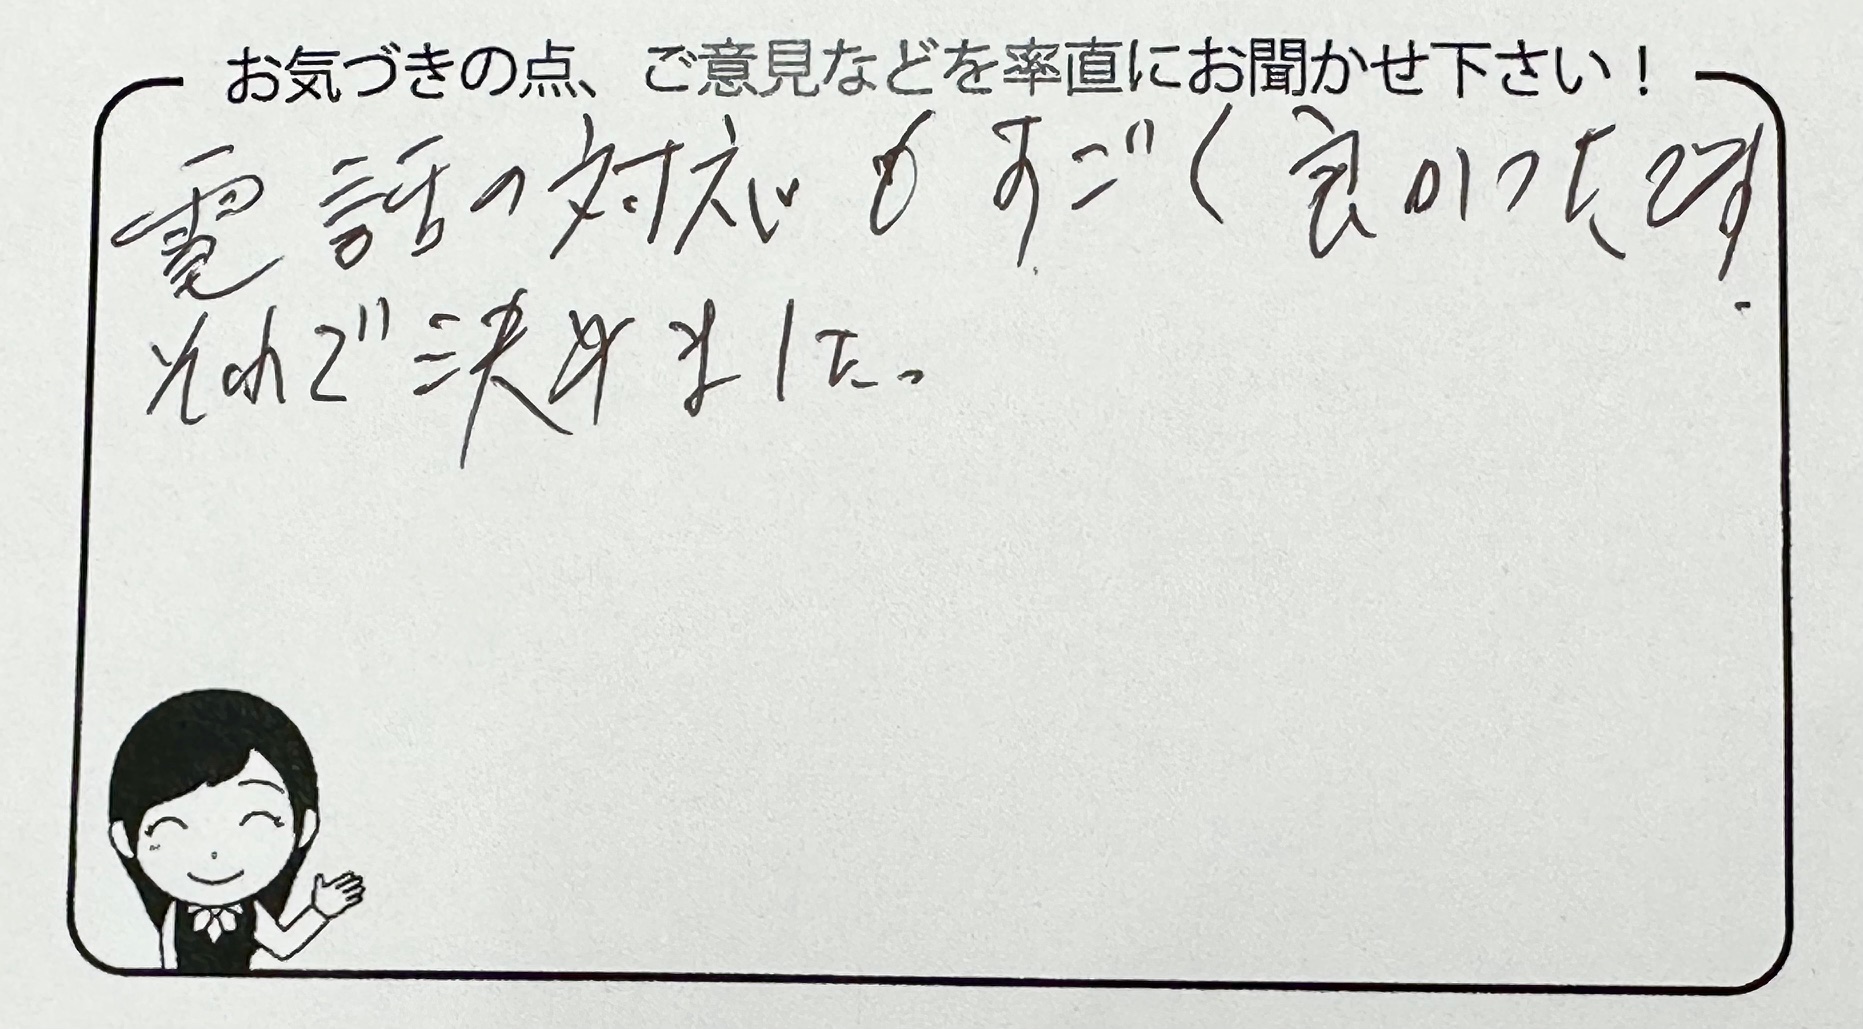 お気づきの点、ご意見などを率直にお聞かせ下さい！
電話の対応もすごく良かったです.
それで決めました。